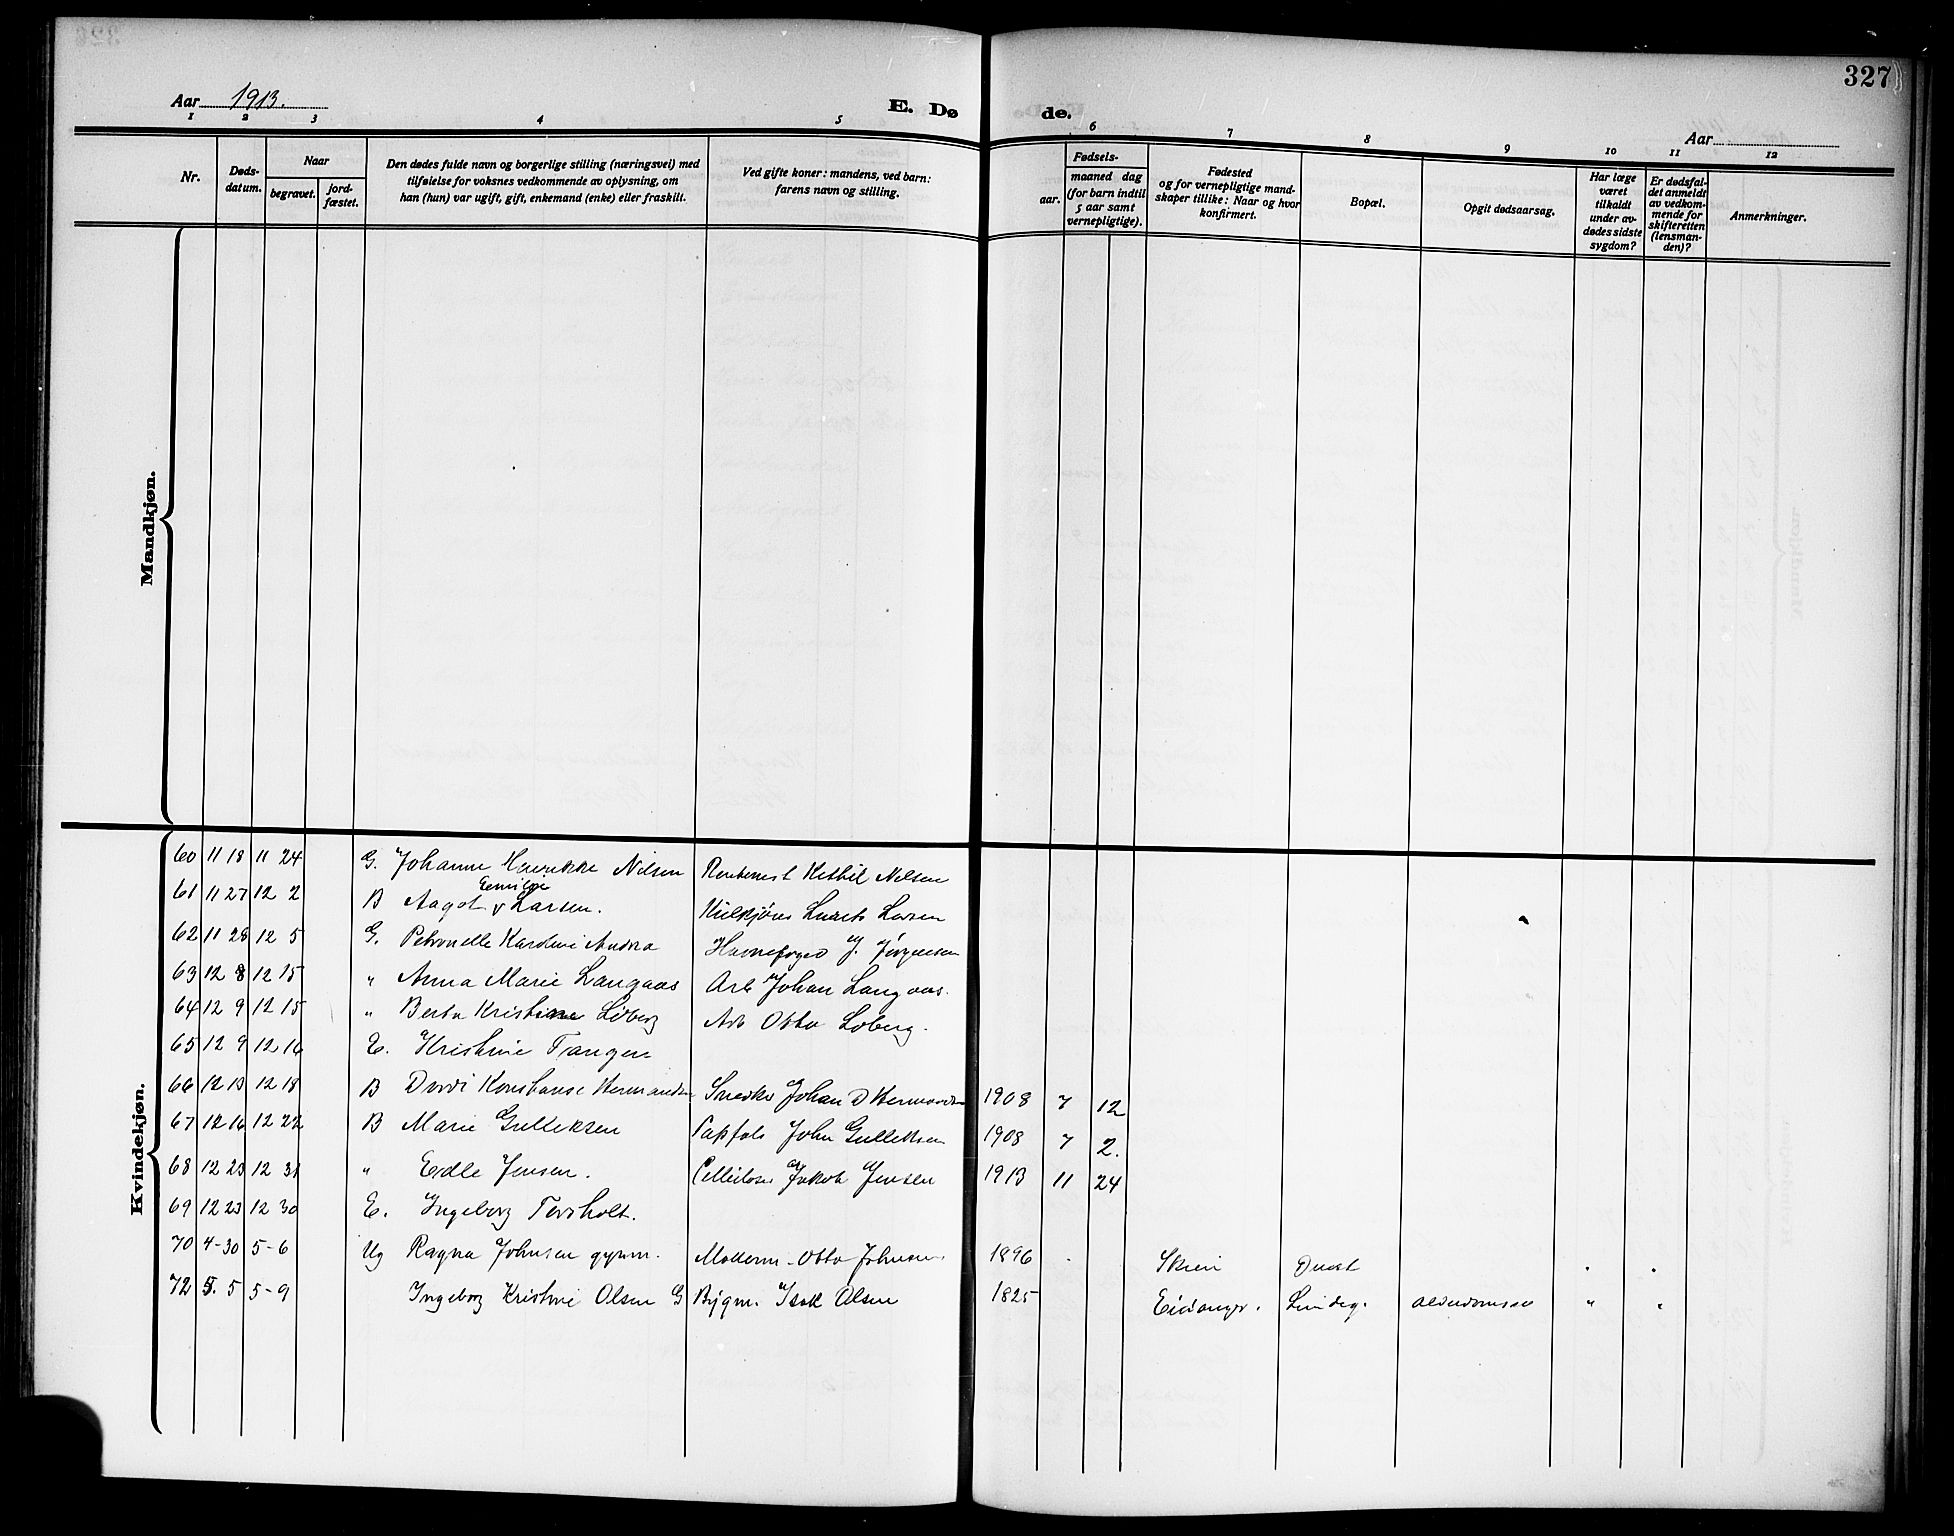 327
Aar 1913.
E. Dø de.
Aar
1 2 3 4 5 6 7 8 9 10 11 12
Nr.
Døds-
datum.
Naar
begravet.
jord-
fæstet.
Den dødes fulde navn og borgerlige stilling (næringsvei) med
tilføielse for voksnes vedkommende av oplysning, om
han (hun) var ugift, gift, enkemand (enke) eller fraskilt.
Ved gifte koner: mandens, ved barn:
farens navn og stilling.
Fødsels-
aar.
maaned dag
(for barn indtil
5 aar samt
vernepligtige).
Fødested
og for vernepligtige mand-
skaper tillike: Naar og hvor
konfirmert.
Bopæl.
Opgit dødsaarsag.
Har læge
været
tilkaldt
under av-
dødes sidste
sygdom?
Er dødsfal-
det anmeldt
av vedkom-
mende for
skifteretten
(lensman-
den)?
Anmerkninger.
Mandkjøn.
Kvindekjøn.
60 11 18 11 24 G. Johanne Nilsen Kethil Nilsen
61 11 27 12 2 B Aagot Emilie Larsen. Larsen
62 11 28 12 5 G. Petronelle Karoline Andrea Havnefoged J. Jørgensen
63 12 8 12 15 " Anna Marie Langaas Arb Johan Langaas.
64 12 9 12 15 " Berta Kristine Loberg Arb Otto Loberg.
65 12 9 12 16 E. Kristine Tangen
66 12 13 12 18 B Konstanse Hermandsen Snedker Johan D Hermandsen 1908 7 12
67 12 16 12 22 B Marie Gulliksen John Gulliksen 1908 7 2.
68 12 23 12 31 " Edle Jensen. Cellulosearb Jakob Jensen 1913 11 24
69 12 23 12 30 E. Ingeborg Torsholt.
70 4-30 5-6 Ug Ragna Johnsen gymn. Otto Johnsen 1896 Skien
72 5. 5 5-9 Ingeborg Kristine Olsen G Bygm. Isak Olsen 1825 Eidanger. Lindeg. " "